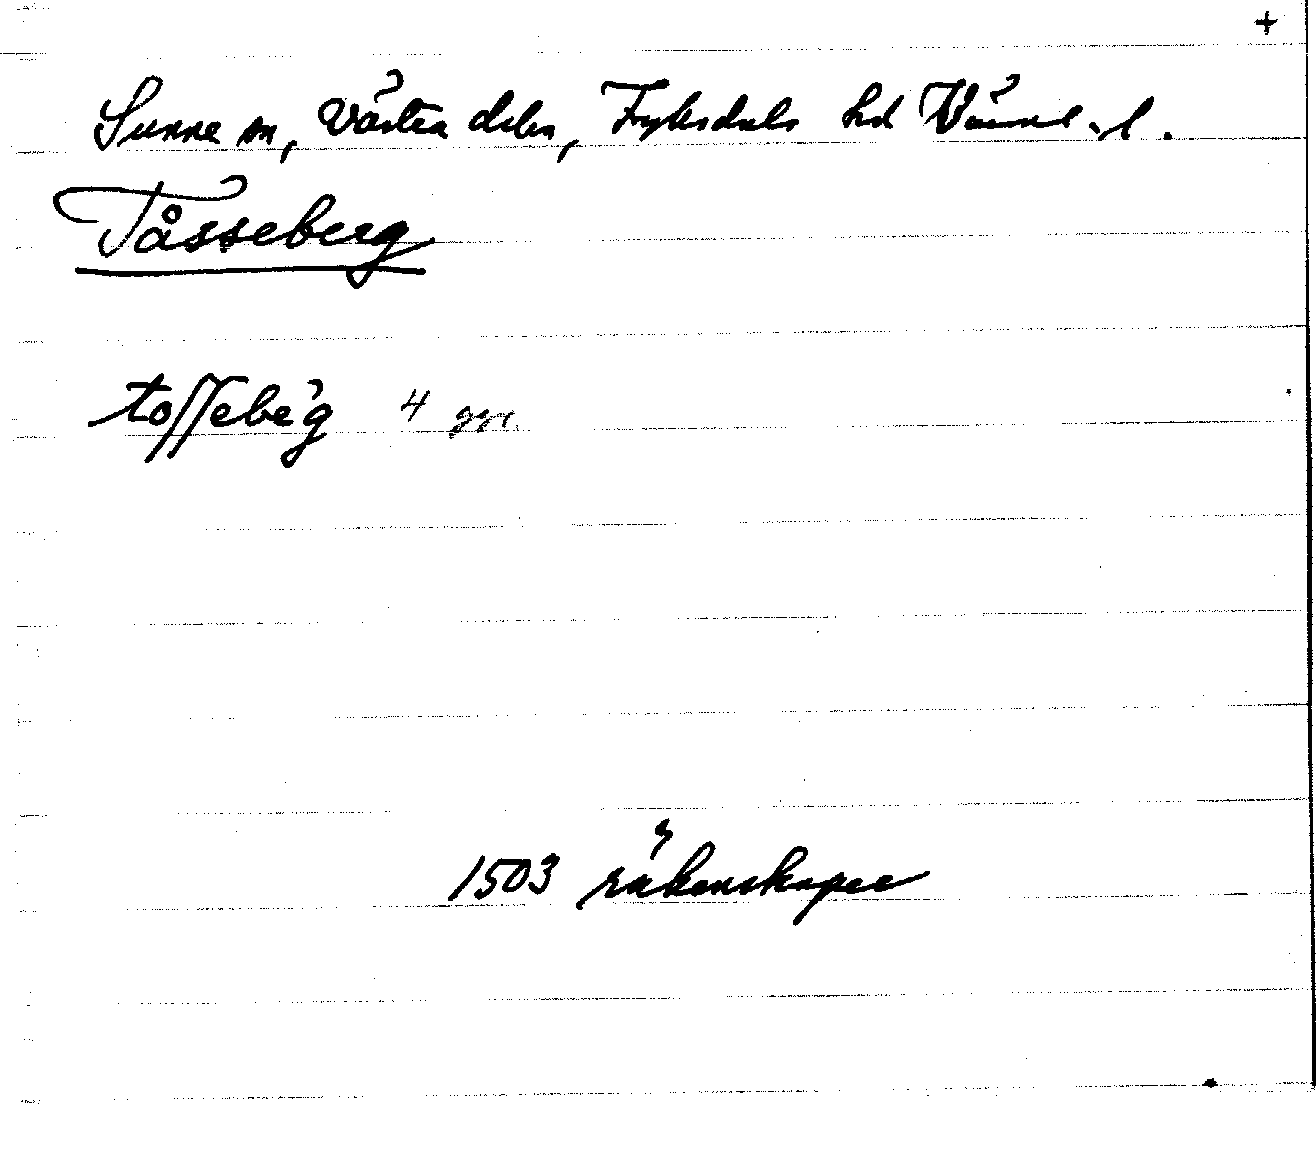 +
Sunne sn, västra delen, Fryksdals hd Värml. l.
Tåsseberg
tossebe'g 4 gge.
1503 räkenskaper